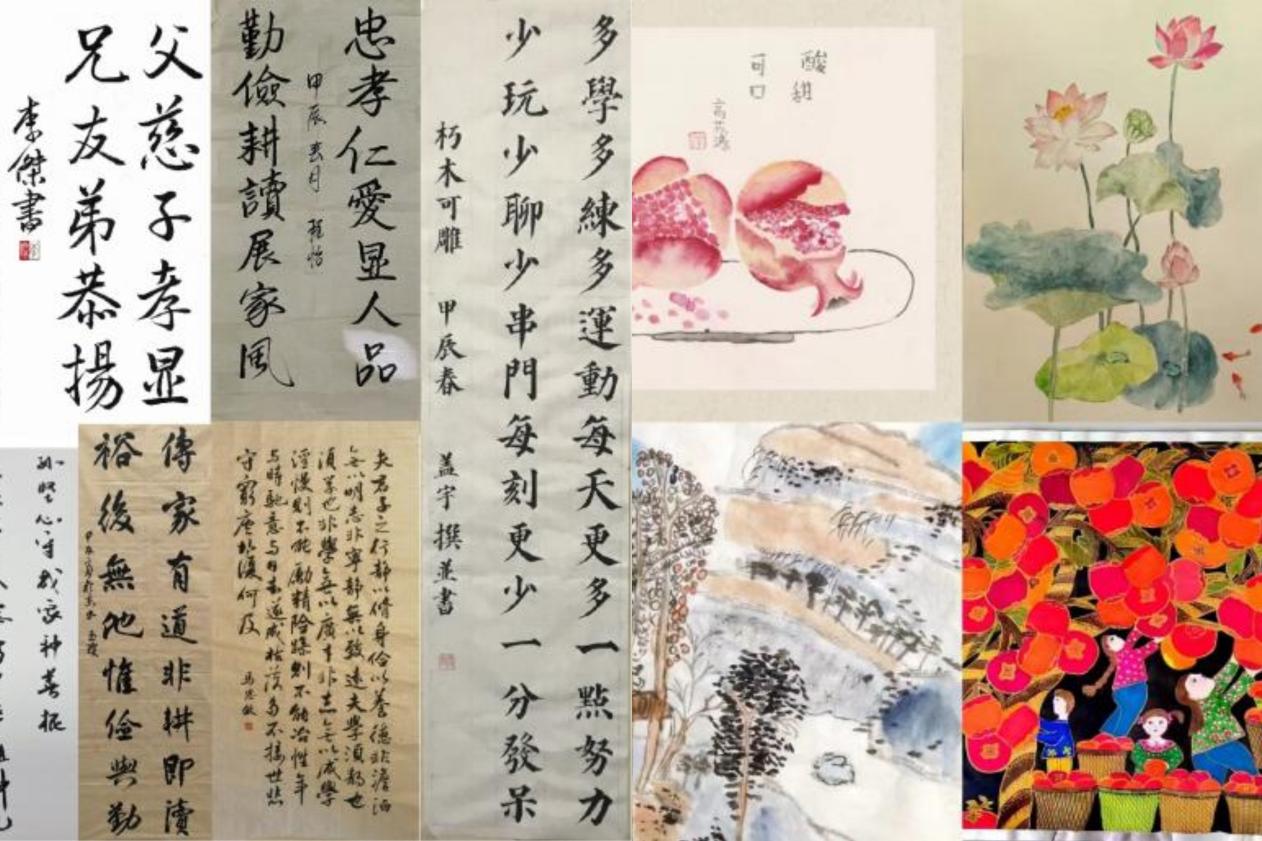 父慈子孝显
兄友弟恭揚
李傑書
忠孝仁愛显人品
甲辰春月
勤儉耕讀展家風
多學多練多運動每天更多一點努力
少玩少聊少串門每刻更少一分發呆
朽木可雕 甲辰春 盖宇撰並書
酸甜
可口
傳家有道非耕即讀
裕後無他惟儉與勤
夫君子之行静以修身俭以養德非澹泊
無以明志非寧静無以致遠夫學須静也
須學也非學無以廣才非志無以成學
淫慢則不能勵精險躁則不能冶性年
与時馳意与日去遂成枯落多不接世悲
守窮庐将復何及